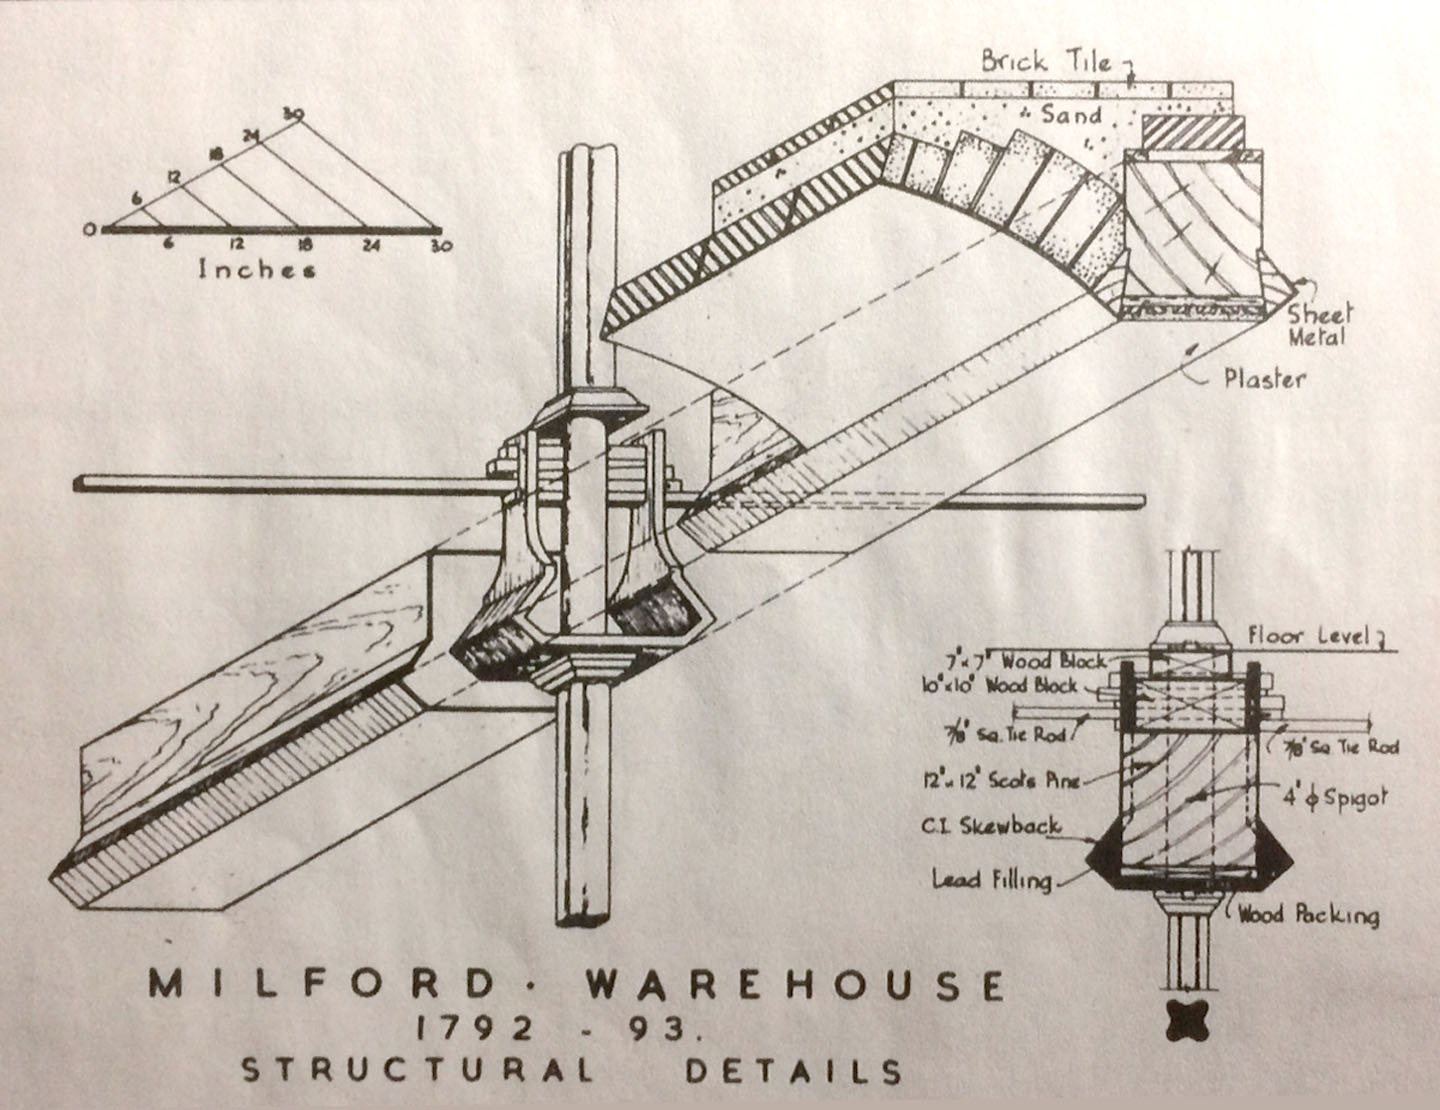 Brick Tile
Sand
Sheet
Metal
Plaster
0 6 12 18 24 30
6 12 18 24 30
Inches
Floor Level
7"x7" Wood Block
10"x10" Wood Block
7/8" Sq. Tie Rod
7/8" Sq. Tie Rod
12"x12" Scots Pine
4" ϕ Spigot
C.I. Skewback
Lead Filling
Wood Packing
MILFORD · WAREHOUSE
1792 - 93.
STRUCTURAL DETAILS